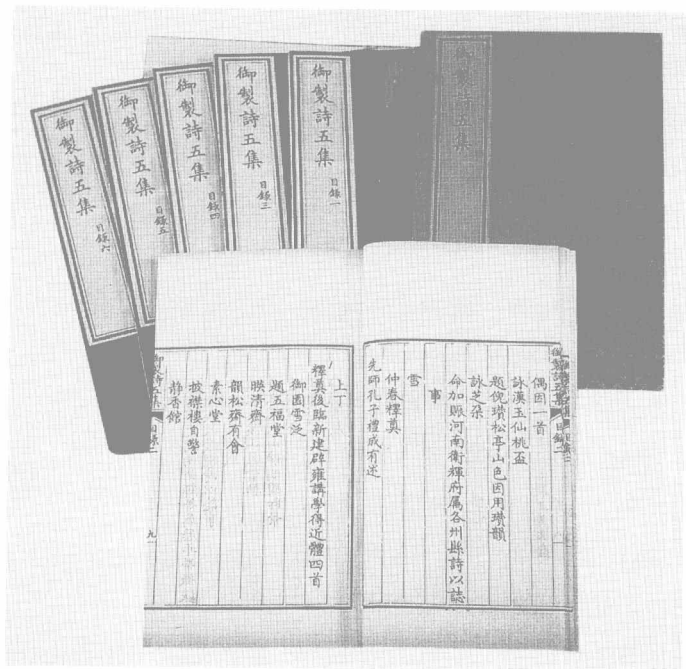 御製詩五集
御製詩五集
目錄一
御製詩五集
目錄三
御製詩五集
目錄四
御製詩五集
目錄五
御製詩五集
目錄六
御製詩五集
目錄二
偶因一首
詠漢玉仙桃盃
題倪瓚松亭山色因用瓚韻
詠芝朶
命加賑河南衛輝府屬各州縣詩以誌
事
雪
仲春釋奠
先師孔子禮成有述
上丁
釋奠後臨新建辟雍講學得近體四首
御園雪泛
題五福堂
暎清齋
韻松齋有會
素心堂
披襟樓自警
静香館
御製詩五集
目錄二
九